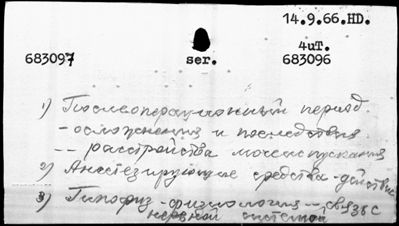 14.9.66.HD.
4uT.
683097 ser. 683096
1) Послеоперационный период
- осложнения и последствия
-- расстройства мочеиспускания
2) Анестезирующие средства - действие
3) Гипофиз - физиология - связь с
нервной системой